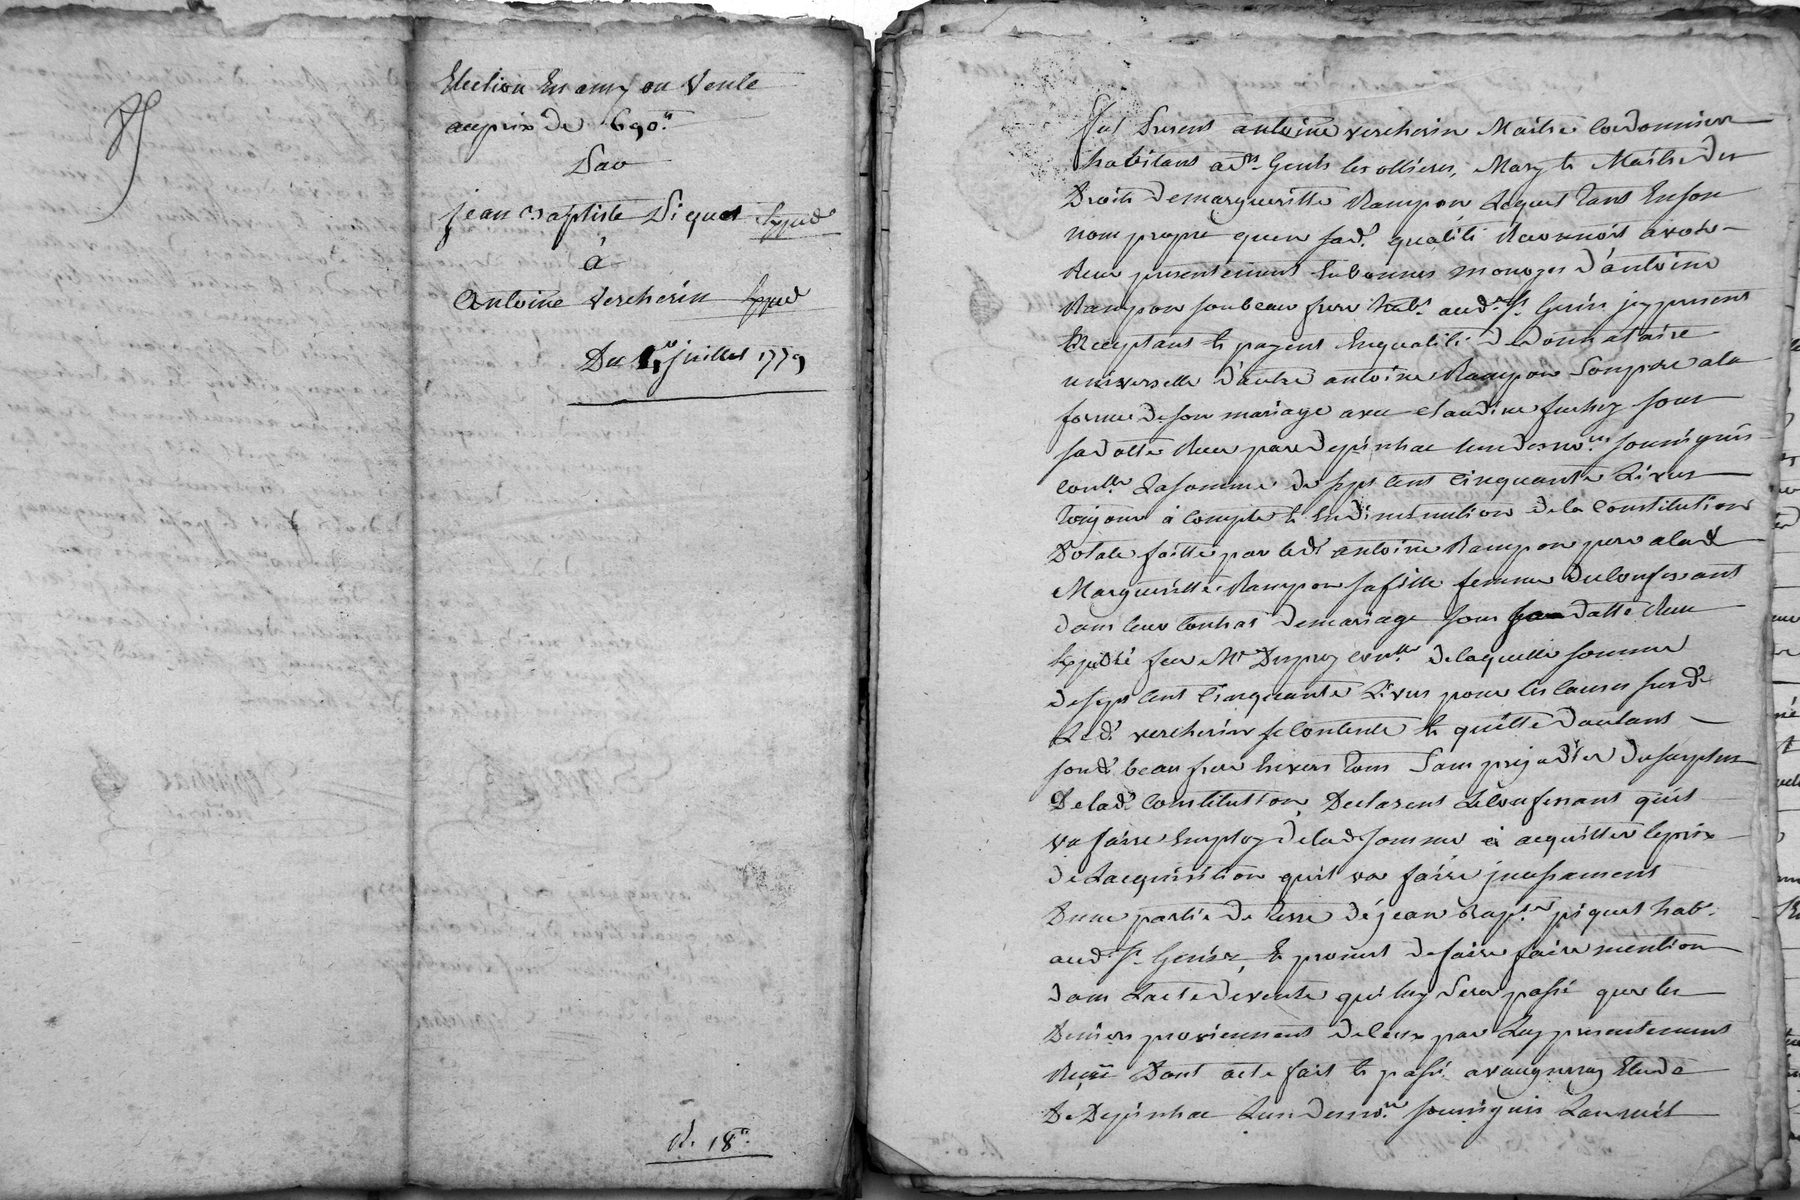 Election En amy ou Vente
au prix de 690.tt
Par
Jean Baptiste Piquet
à
Antoine Vercherin
Du juillet 1779
R. 18
fut Present antoine vercherin Maitre Cordonnier
habitant a St Genis les ollieres, Mary & Maitre des
Droits de margueritte Rampon Lequel Tant En son
nom propre quen sad. qualité Reconnoit avoir
Reçu presentement En bonnes monoyes d'antoine
Rampon son beau frere habt. aud. St. Genis jcy present
Acceptant & payent En qualité de donnataire
universelle d'autre antoine Rampon Son pere a la
forme de son mariage avec Claudine sous
sa datte Reçu par Depinhac lun des no.res soussignés
Lasomme de sept Cent Cinquante Livres
Toujour à Compte & En diminution de la Constitution
Dotale faitte par led. antoine Rampon pere a lad.
Margueritte Rampon sa fille femme du Confessant
dans leur Contrat de mariage sous sa datte Reçu
feu Mr. de laquelle somme
de sept Cent Cinquante Livres pour les Causes susd.
Led. vercherin se Contente & quitte d'autant
sond. beau frere Envers Tous Sans prejudice du surplus
De lad. Constitution, Declarent le Confessant quil
va faire Employ de lad. somme à acquitter le prix
de Lacquisition quil va faire jncessament
Dune partie de Terre de jean Bapt.te piquet hab.t
aud. St. Genis, & promet de faire faire mention
dans Lacte de vente qui luy Sera passé que les
Deniers proviennent de Ceux par Luy presentement
Reçus Dont acte fait & passé a vaugneray Etude
De Depinhac Lun des no.res soussignés